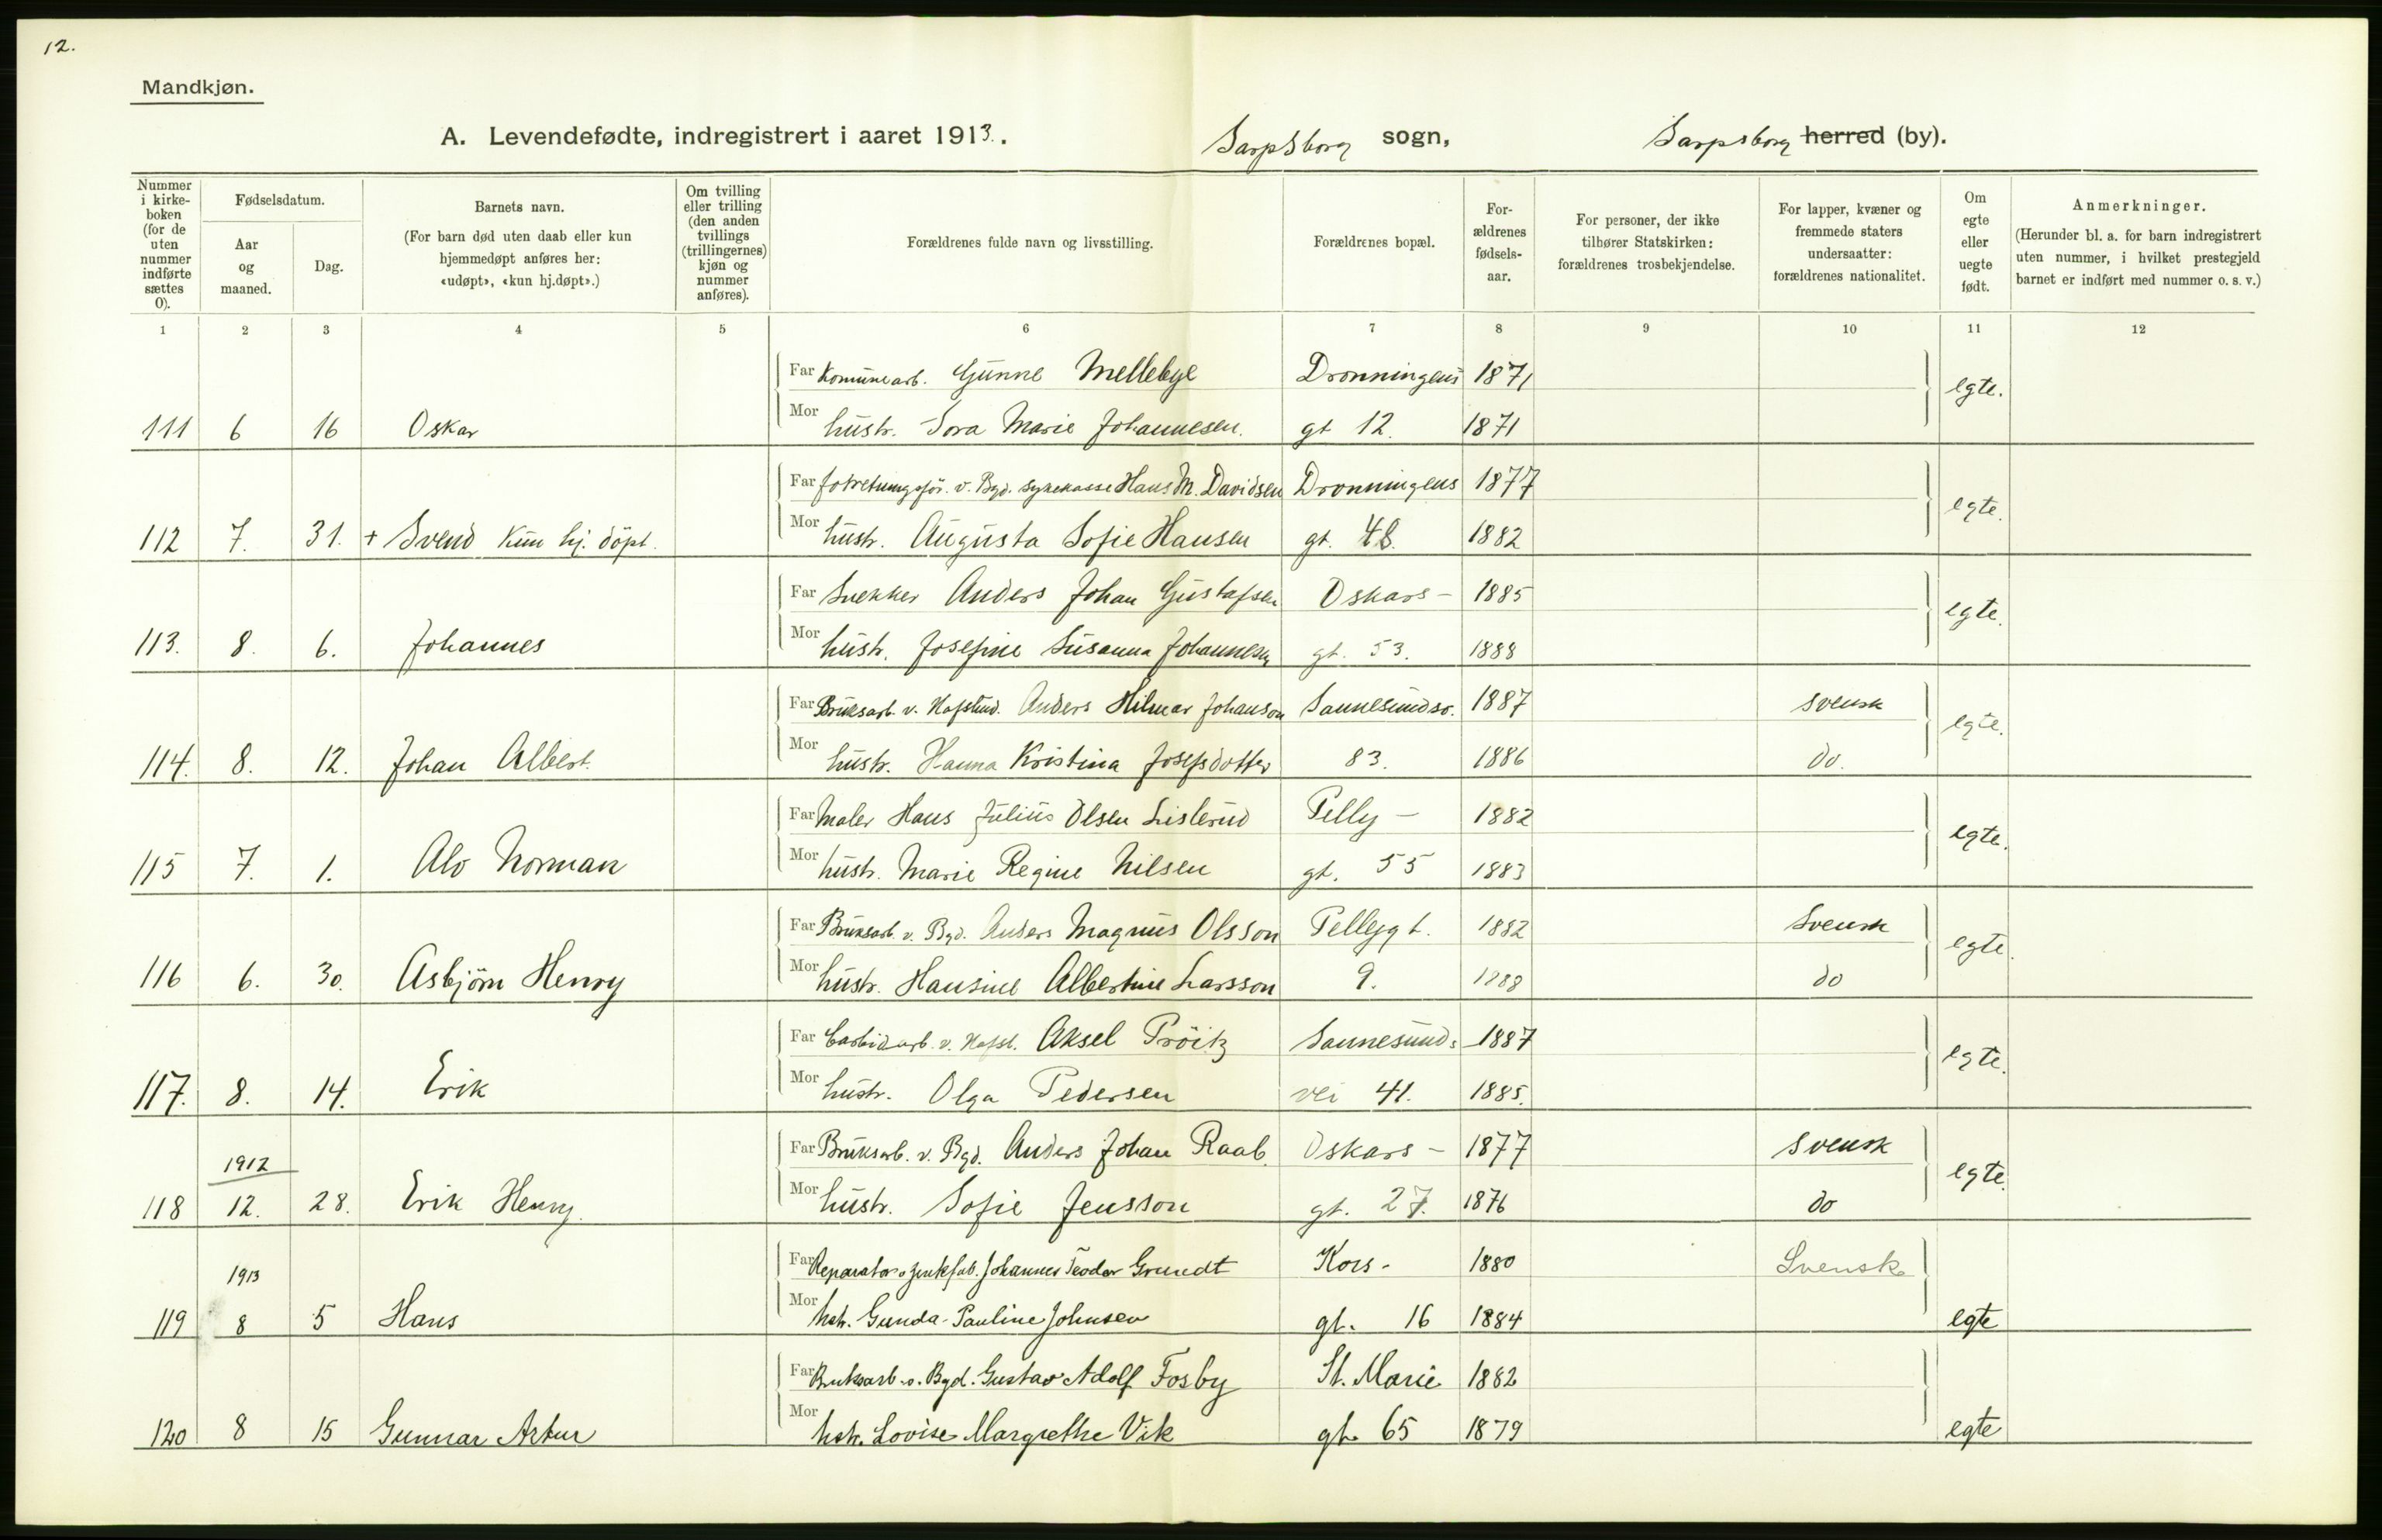 12.
Mandkjøn.
A. Levendefødte, indregistrert i aaret 1913. Sarpsborg sogn, Sarpsborg herred (by).
Nummer i kirke-boken (for de uten nummer indførte sættes 0).
Fødselsdatum.
Aar og maaned.
Dag.
Barnets navn.
(For barn død uten daab eller kun hjemmedøpt anføres her: «udøpt», «kun hj.døpt».)
Om tvilling eller trilling (den anden tvillings (trillingernes) kjøn og nummer anføres).
Forældrenes fulde navn og livsstilling.
Forældrenes bopæl.
For-ældrenes fødsels-aar.
For personer, der ikke tilhører Statskirken: forældrenes trosbekjendelse.
For lapper, kvæner og fremmede staters undersaatter: forældrenes nationalitet.
Om egte eller uegte født.
Anmerkninger.
(Herunder bl. a. for barn indregistrert uten nummer, i hvilket prestegjeld barnet er indført med nummer o. s. v.)
1 2 3 4 5 6 7 8 9 10 11 12
Far Komunearb. Gunne Mellebye Dronningens 1871 egte.
111 6 16 Oskar Mor hustr. Tora Marie Johannesen. gt 12. 1871
Far forretningsför. v. Bgd. sykekasse Hans M. Davidsen Dronningens 1877 egte.
112 7. 31. + Svend Kun hj. döpt. Mor hustr. Augusta Sofie Hansen gt. 48. 1882
Far Snekker Anders Johan Gustafsen Oskars - 1885 egte.
113. 8. 6. Johannes Mor hustr. Josefine Susanna Johannesen gt. 53. 1888
Far Bruksarb. v. Hafslund. Anders Hilmar Johanson Sannesundsv. 1887 svensk egte.
114. 8. 12. Johan Albert. Mor hustr. Hanna Kristina Josefsdotter 83. 1886 do.
Far Maler Hans Julius Olsen Lislerud Pelly - 1882 egte.
115 7. 1. Alv Norman Mor hustr. Marie Regine Nilsen gt. 55 1883
Far Bruksarb. v. Bgd. Anders Magnus Olsson Pellygt. 1882 Svensk egte.
116 6. 30. Asbjörn Henry Mor hustr. Hansine Albertine Larsson 9. 1888 do
Far Carbidarb. v. Hafsl. Aksel Pröitz Sannesunds 1887 egte.
117. 8. 14. Erik Mor hustr. Olga Pedersen vei 41. 1885.
1912 Far Bruksarb. v. Bgd. Anders Johan Raab. Oskars - 1877 svensk egte.
118 12. 28. Erik Henry. Mor hustr. Sofie Jensson gt. 27. 1876 do
1913 Far Reparatør v. zinkfab. Johannes Teodor Grundt Kors- 1880 Svensk
119 8 5 Hans Mor hstr. Gunda Pauline Johnsen gt. 16 1884 egte
Far Bruksarb. v. Bgd. Gustav Adolf Fosby St. Marie 1882
120 8 15 Gunnar Artur Mor hstr. Lovise Margrethe Vik gt. 65 1879 egte